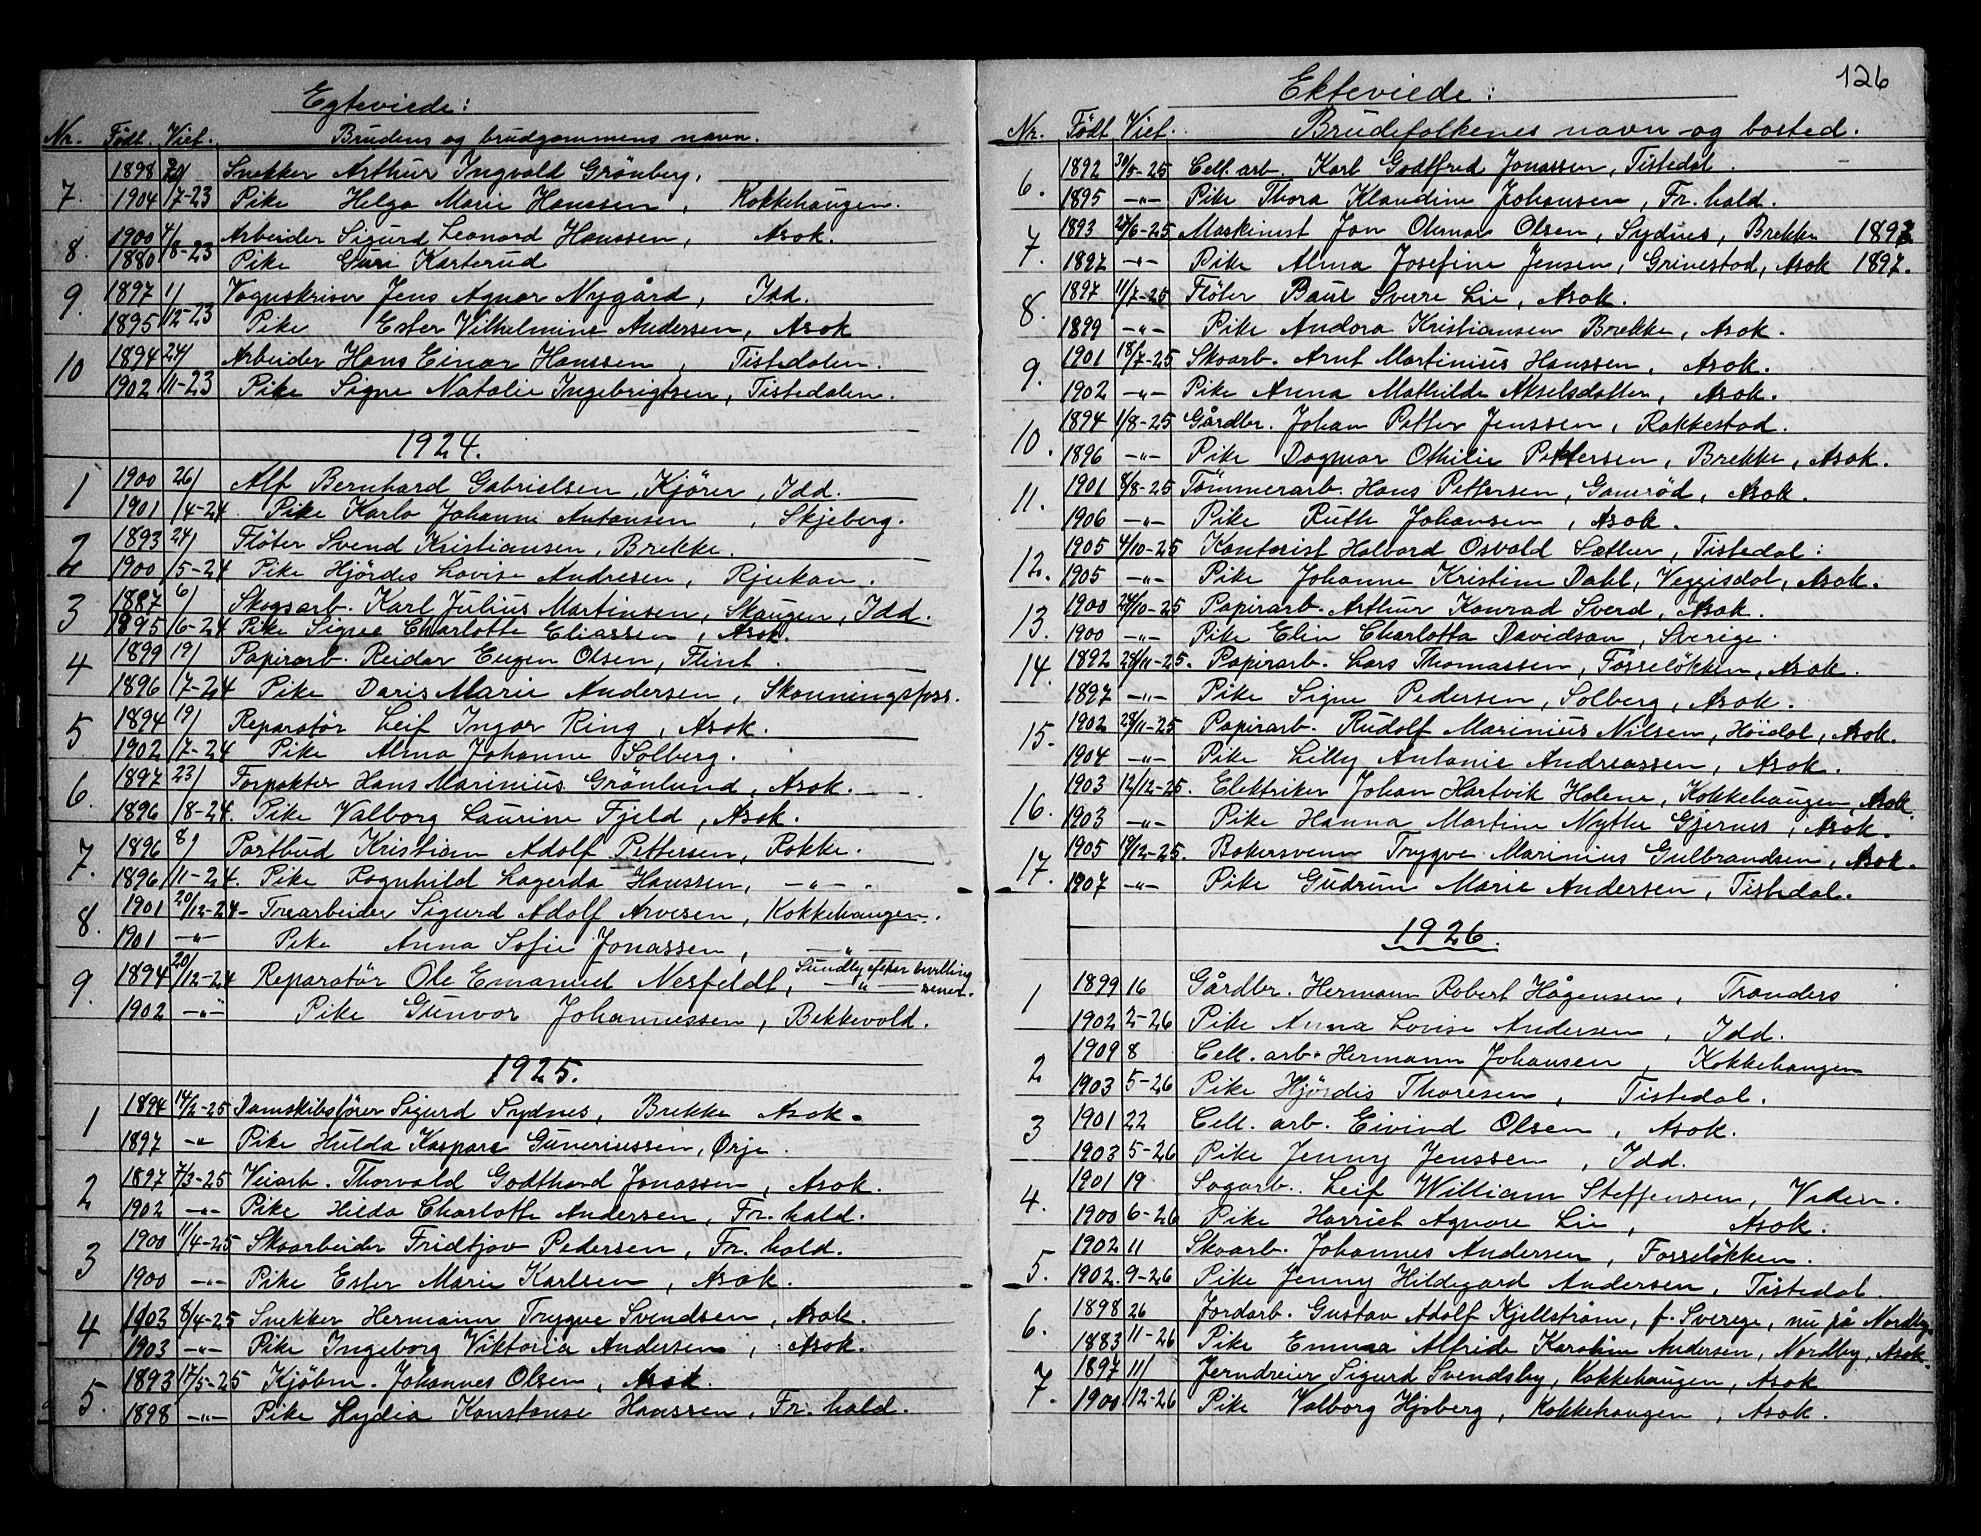 Egteviede:
Nr. Født. Viet. Brudens og brudgommens navn.
1898 20/ Snekker Arthur Ingvald Grönberg.
7. 1904 7-23 Pike Helga Marie Hanssen, Kokkehaugen.
1900 4/ Arbeider Sigurd Leonard Hanssen, Asok.
8. 1880 8-23 Pike Guri Karterud
1897 1/ Vognskriver Jens Agnar Nygård, Idd.
9. 1895 12-23 Pike Ester Vilhelmine Andersen, Asok
1894 24/ Arbeider Hans Einar Hanssen, Tistedalen.
10 1902 11-23 Pike Signe Natalie Ingebrigtsen, Tistedalen.
1924.
1 1900 26/ Alf Bernhard Gabrielsen, Kjörer, Idd.
1901 4-24 Pike Karlo Johanne Antonsen, Skjeberg.
2 1893 24/ Fløter Svend Kristiansen, Brekke.
1900 5-24 Pike Hjördis Lovise Andresen, Rjukan.
3 1887 6/ Skogsarb. Karl Julius Martinsen, Skaugen, Idd.
1895 6-24 Pike Signe Charlotte Eliassen, Asok.
4 1899 19/ Papirarb. Reidar Eugen Olsen, Flint.
1896 7-24 Pike Doris Marie Andersen, Skonningsfoss.
5 1894 19/ Reparatør Leif Ingvar Ring, Asok.
1902 7-24 Pike Alma Johanne Solberg.
6. 1897 23/ Forpakter Hans Marinius Grönlund, Asok.
1896 8-24. Pike Valborg Laurine Fjeld, Asok.
7. 1896 8/ Postbud Kristian Adolf Pettersen, Rokke.
1896 11-24. Pike Ragnhild Lagerda Hanssen, —„—.
8. 1901 20/12-24 - Trearbeider Sigurd Adolf Arvesen, Kokkehaugen.
1901 —„— Pike Anna Sofie Jonassen, —„—
9. 1894 20/12-24 Reparatör Ole Emanuel Nesfeldt, —„— Sundby efter bevilling senere.
1902 —„— Pike Gunvor Johannessen, Bekkevold.
1925.
1 1894 14/2-25 Damskibsfører Sigurd Sydnes, Brekke Asok.
1897 —„— Pike Hulda Kaspara Guneriussen, Ørje.
2 1897 7/3-25 Veiarb. Thorvald Godthard Jonassen, Asok.
1902 —„— Pike Hilda Charlotte Andersen, Fr. hald.
3 1900 11/4-25 Skoarbeider Fridtjov Pedersen, Fr. hald.
1900 —„— Pike Ester Marie Karlsen, Asok.
4 1903 8/4-25 Snekker Hermann Trygve Svendsen, Asok.
1903 —„— Pike Ingeborg Viktoria Andersen, Asok.
5. 1893 17/5-25 Kjöbm. Johannes Olsen, Asok.
1898 —„— Pike Lydia Konstanse Hanssen, Fr. hald.
126
Ekteviede:
Nr. Født Viet. Brudefolkenes navn og bosted.
6. 1892 30/5-25 Cell. arb. Karl Godtfred Jonassen, Tistedal.
1895 —„— Pike Thora Klaudine Johansen, Fr. hald.
7. 1893 27/6-25 Maskinist Jon Olemar Olsen, Sydnes, Brekke 1893
1897 —„— Pike Alma Josefine Jensen, Grinestad, Asok 1897.
8. 1897 11/7-25 Fløter Paul Sverre Lie, Asok.
1899 —„— Pike Andora Kristiansen Brekke, Asok.
9. 1901 18/7-25 Skoarb. Arnt Martinius Hanssen, Asok.
1902 —„— Pike Anna Mathilde Akselsdatter, Asok.
10. 1894 1/8-25 Gårdbr. Johan Petter Jenssen, Rakkestad.
1896 —„— Pike Dagmar Othilie Pettersen, Brekke, Asok.
11. 1901 8/8-25 Tömmerarb. Hans Pettersen, Gamröd, Asok.
1906 —„— Pike Ruth Johansen, Asok.
12. 1905 4/10-25 Kontorist Halvard Osvald Sæther, Tistedal:
1905 —„— Pike Johanne Kristine Dahl, Veggisdal, Asok.
13. 1900 24/10-25 Papirarb. Arthur Konrad Sverd, Asok.
1900 —„— Pike Elin Charlotta Davidson, Sverige.
14. 1892 28/11-25. Papirarb. Lars Thomassen, Fosseløkken, Asok.
1897 —„— Pike Signe Pedersen, Solberg, Asok.
15. 1902 28/11-25 Papirarb. Rudolf Marinius Nilsen, Höidal, Asok.
1904 —„— Pike Lilly Antonie Andreassen, Asok.
16. 1903 12/12-25. Elektriker Johan Hartvik Holene, Kokkehaugen, Asok.
1903 —„— Pike Hanna Martine Nytte Gjernes, Asok.
17. 1905 19/12-25. Bakersvenn Trygve Marinius Gulbrandsen, Asok.
1907 —„— Pike Gudrun Marie Andersen, Tistedal.
1926.
1 1899 16 Gårdbr. Hermann Robert Hågensen, Tranders
1902 2-26 Pike Anna Lovise Andersen, Idd.
2 1909 8 Cell. arb. Hermann Johansen, Kokkehaugen
1903 5-26 Pike Hjördis Thoresen, Tistedal.
3 1901 22 Cell. arb. Eivind Olsen, Asok.
1903 5-26 Pike Jenny Jenssen, Idd.
4. 1901 19 Sagarb. Leif William Steffensen, Veden.
1900 6-26 Pike Harriet Agnore Lie, Asok.
5. 1902 11 Skoarb. Johannes Andersen, Fosseløkken.
1902. 9-26 Pike Jenny Hildegard Andersen, Tistedal.
6. 1898 26 Jordarb. Gustav Adolf Kjellström, f. Sverege, nu på Nordby.
1883 11-26 Pike Emma Alfride Karoline Andersen, Nordby, Asok.
7. 1897 11/ Jerndreier Sigurd Svendsby, Kokkehaugen, Asok
1900 12-26 Pike Valborg Hjøberg, Kokkehaugen, Asok.